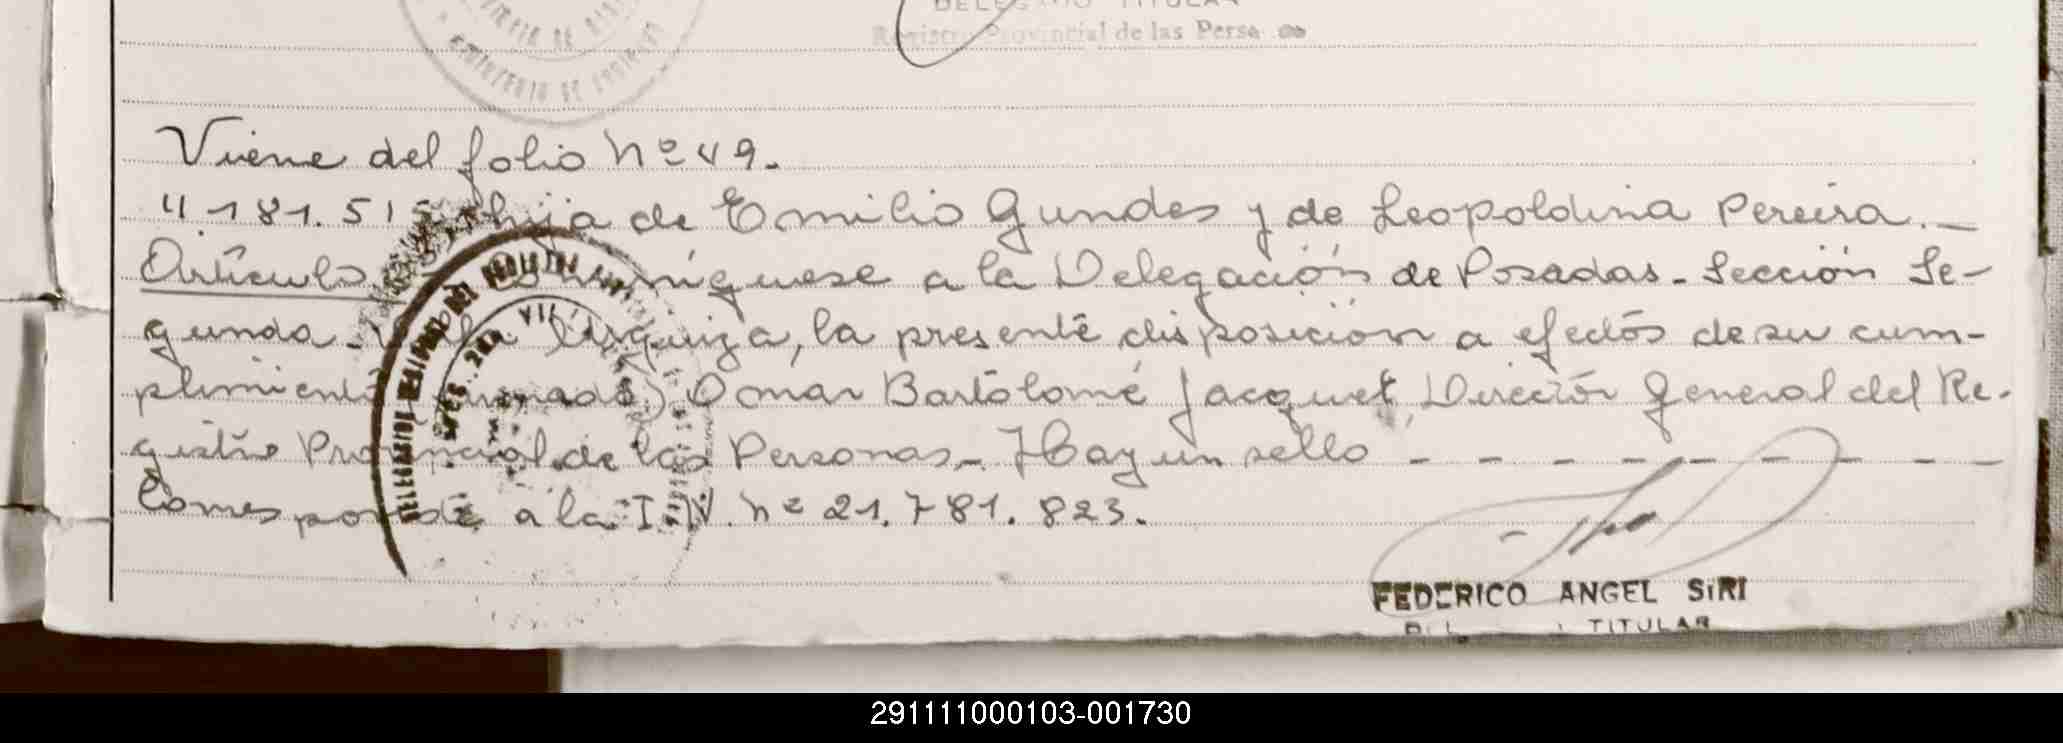 DELEGADO TITULAR
Registro Provincial de las Perso
Viene del folio Nº 49.
4 181.515, hija de Emilio Gundes y de Leopoldina Pereira.—
Artículo Comuníquese a la Delegación de Posadas - Sección Se-
gunda - Villa Urquiza, la presente disposición a efectos de su cum-
plimiento (firmado) Omar Bartolomé Jacquet Director General del Re-
gistro Provincial de las Personas - Hay un sello - - - - - - - -
Corresponde a la I.N. nº 21.781.823.
FEDERICO ANGEL SIRI
TITULAR
291111000103-001730